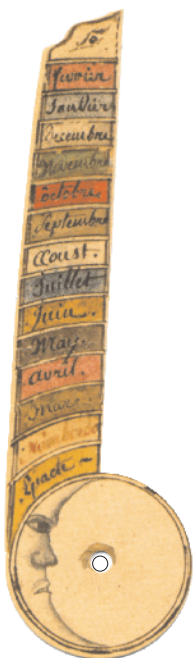 fevrier
Janvier
Decembre
Novembre
octobre.
Septembre
Aoust.
Juillet
Juin.
May.
avril.
Mars.
Nombre
Epacte